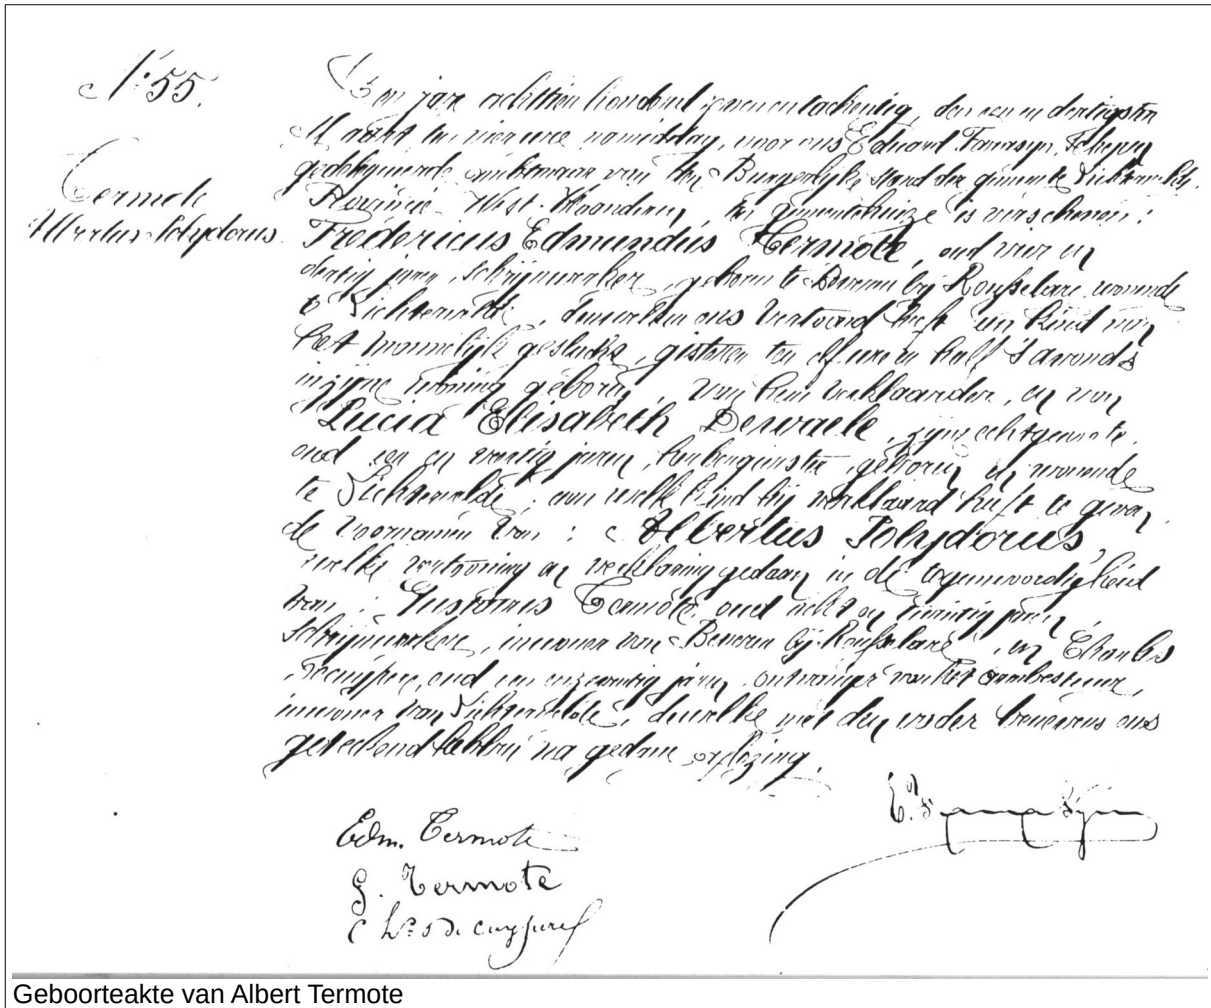 N° 55.
Termote
Albertus Polydorus.
Den jare achttien honderd zeven en tachentig, den een en dertigsten
Maart ten vier ure namiddag, voor ons Eduard Schepen
gedelegueerde van den Burgerlijken stand der gemeente Lichtervelde,
Provincie West-Vlaanderen, ten gemeentehuize is verschenen:
Fredericus Edmundus Termote, oud vier en
dertig jaren, schrijnwerker, geboren te Beveren bij Rousselare, wonende
te Lichtervelde, dewelken ons vertoond heeft een kind van
het mannelijk geslacht, gisteren ten elf ure en half 's avonds
in zijne woning geboren, van hem verklaarder, en van
Lucia Elisabeth Dewaele, zijne echtgenote,
oud een en jaren, herbergierster, geboren en wonende
te Lichtervelde, aan welk kind hij verklaard heeft te geven
de voornamen van: Albertus Polydorus,
welke vertooning en verklaring gedaan in de tegenwoordigheid
van: Gustavus Termote, oud acht en twintig jaren
schrijnwerker, inwoner van Beveren bij Rousselare, en Charles
Decuypere, oud een en jaren, ontvanger van het armbestuur,
inwoner van Lichtervelde, dewelke met den vader benevens ons
geteekend hebben na gedane voorlezing.
Edm. Termote
G. Termote
Ch.s Decuypere
Geboorteakte van Albert Termote